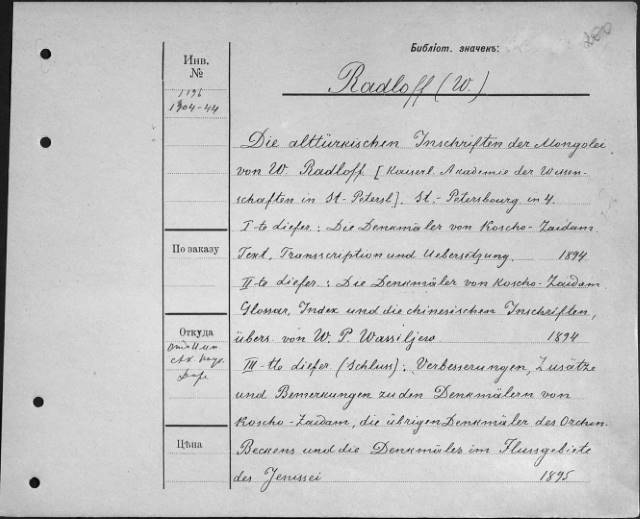 Библіот. значекъ:
Инв.
№
1196
1904-44
Radloff (W.)
Die alttürkischen Inschriften der Mongolei
von W. Radloff [Kaiserl. Akademie der Wissen-
schaften in St-Petersb]. St.-Petersbourg in 4.
I-te Liefer.: Die Denkmäler von Koscho-Zaidam.
По заказу
Text, Transscription und Uebersetzung. 1894
II-te Liefer.: Die Denkmäler von Koscho-Zaidam
Glossar, Index und die chinesischen Inschriften,
Откуда
übers. von W. P. Wassiljew 1894
отъ Имп.
Ак. Наук.
Даръ
III-tte Liefer. (Schluss): Verbesserungen, Zusätze
und Bemerkungen zu den Denkmälern von
Koscho-Zaidam, die übrigen Denkmäler des Orchon
Цѣна
Beckens und die Denkmäler im Flussgebiete
des Jenissei 1895